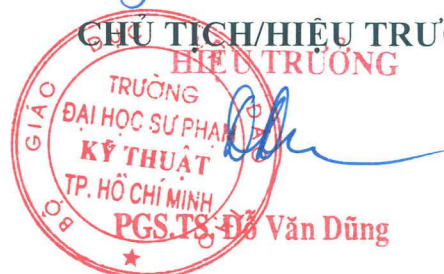 CHỦ TỊCH/HIỆU TRƯỞ
HIỆU TRƯỞNG
BỘ GIÁO DỤC ĐÀO
TRƯỜNG
ĐẠI HỌC SƯ PHẠM
KỸ THUẬT
TP. HỒ CHÍ MINH
PGS.TS. Đỗ Văn Dũng